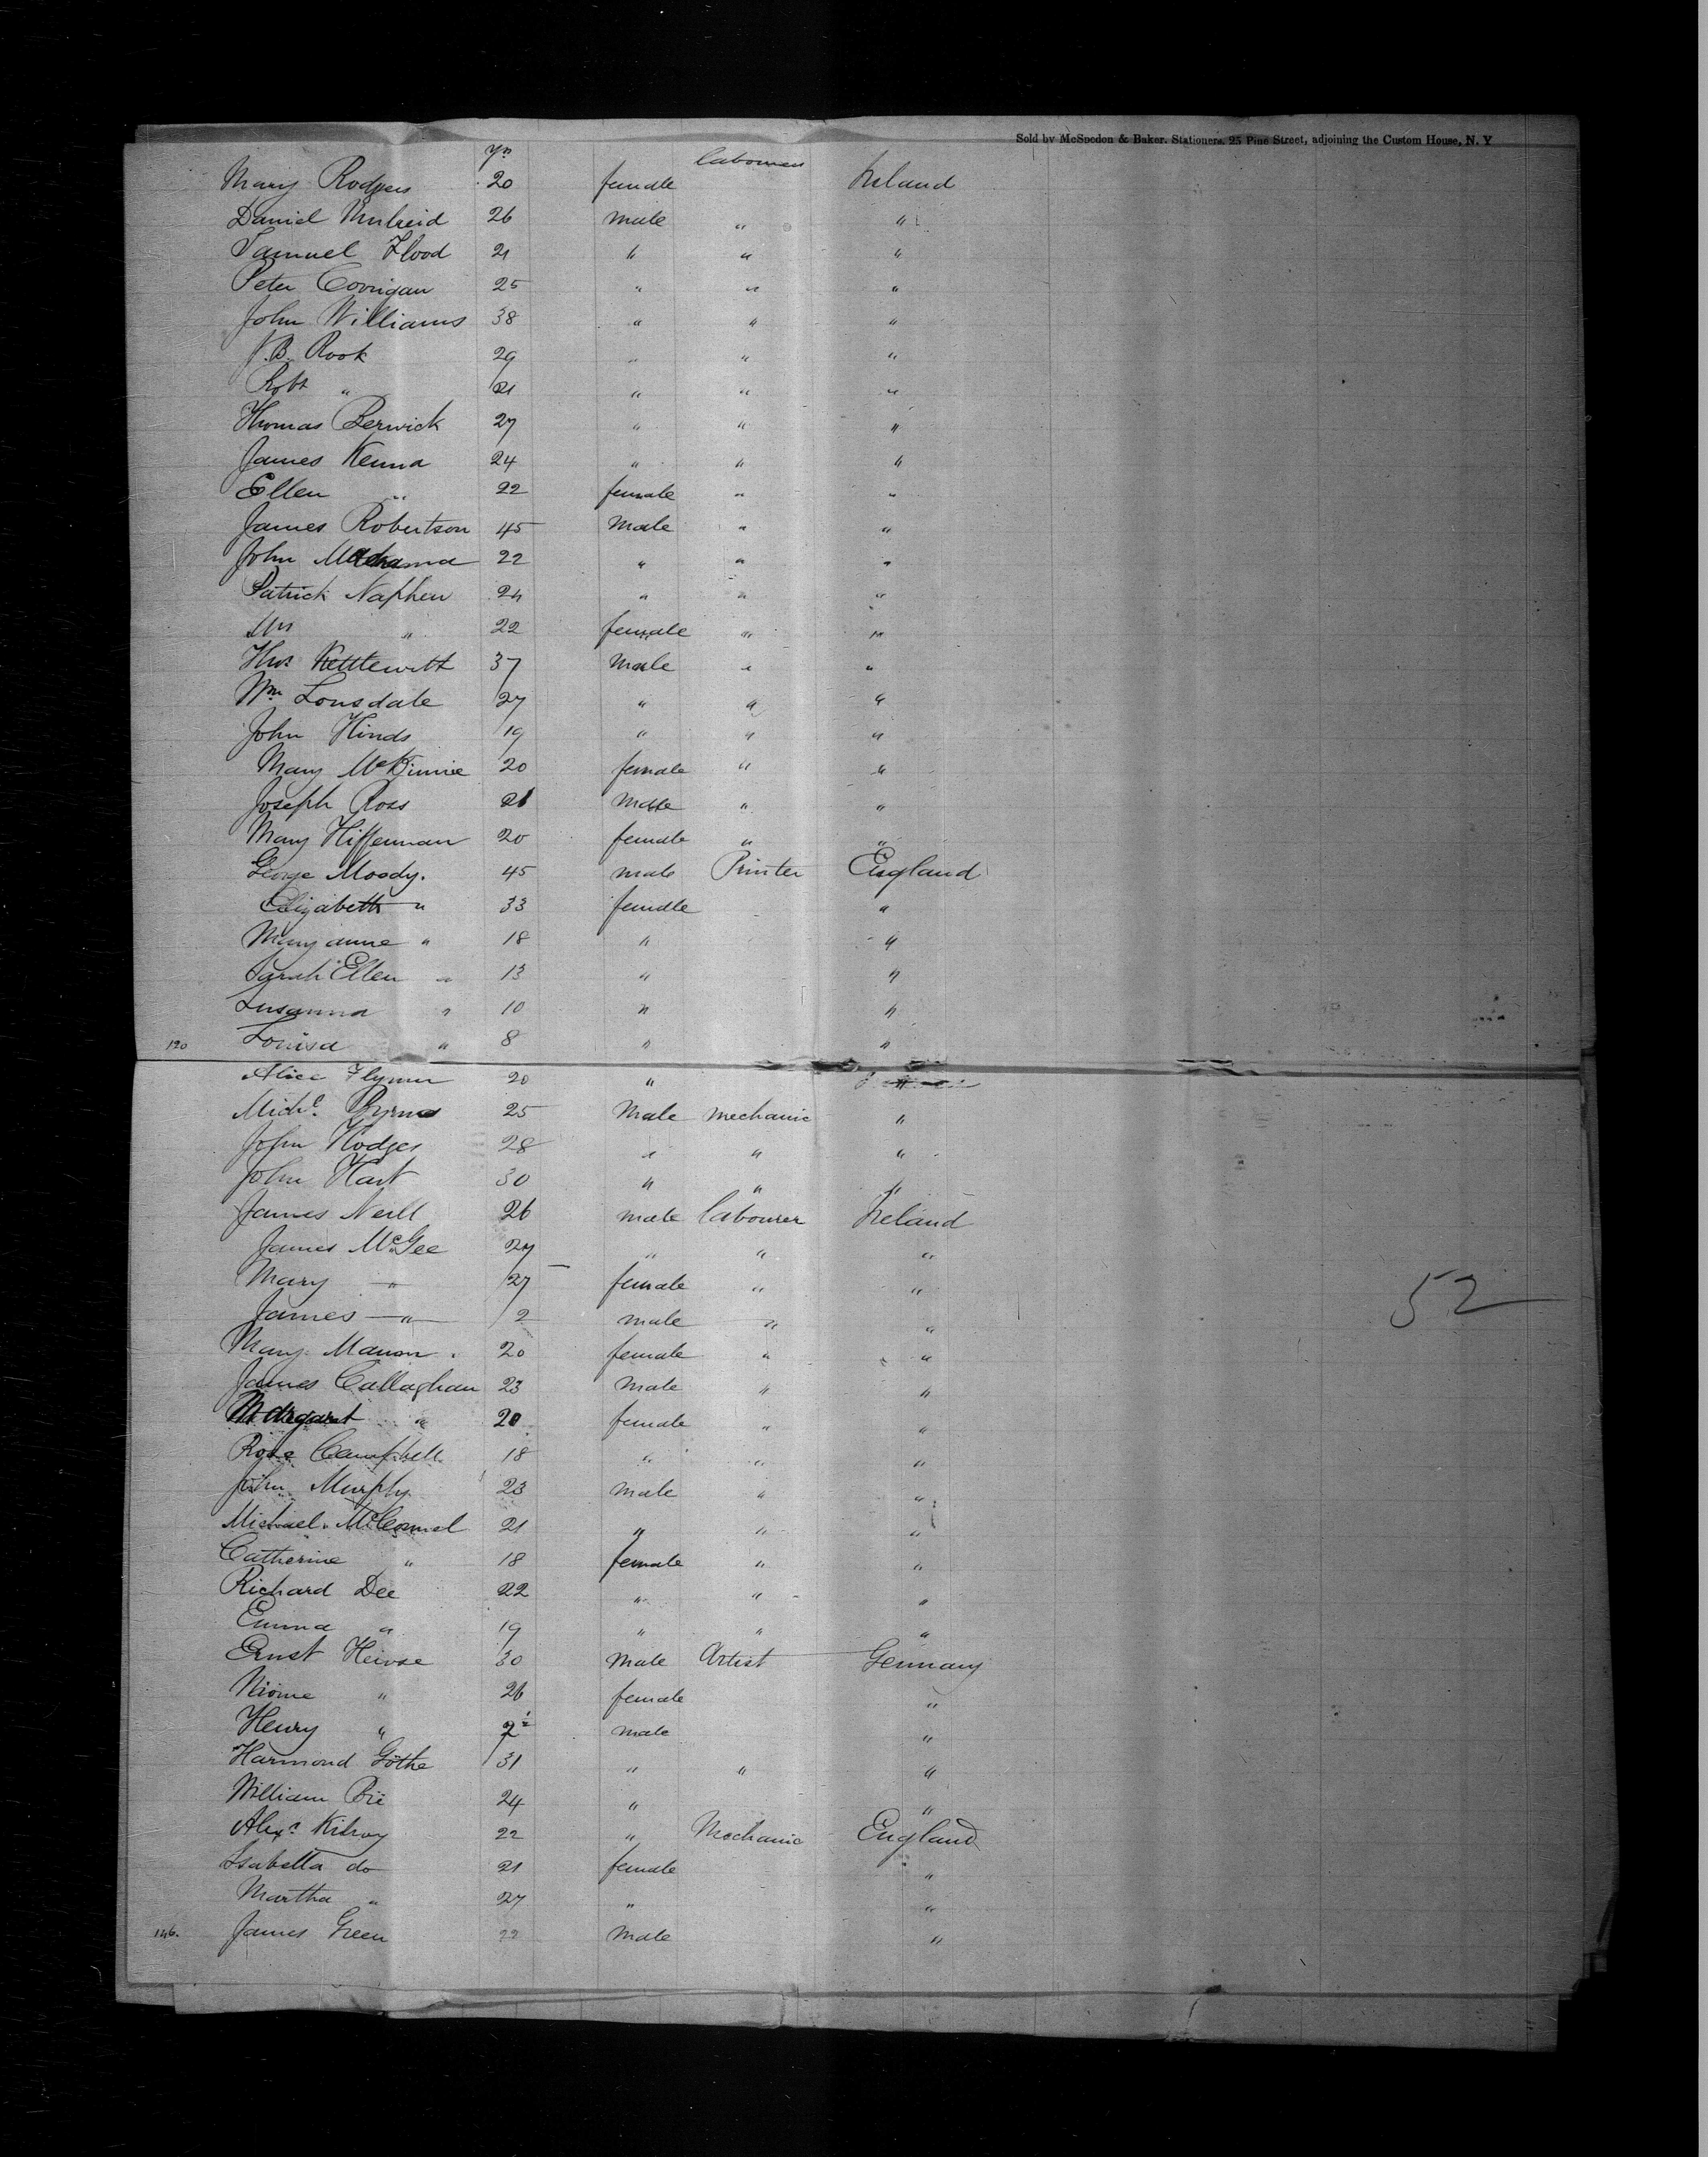 Sold by McSpedon & Baker. Stationers. 25 Pine Street, adjoining the Custom House, N. Y
yrs labourers
Mary Rodgers 20 female Ireland
Daniel 26 male " "
Samuel Flood 21 " " "
Peter Corrigan 25 " " "
John Williams 38 " " "
J. B. Rook 29 " " "
Robt " 21 " " "
Thomas Berwick 27 " " "
James Kenna 24 " " "
Ellen " 22 female " "
James Robertson 45 male " "
John 22 " " "
Patrick Naphen 24 " " "
Mrs " 22 female " "
Thos Kettlewitt 37 male " "
Wm Lonsdale 27 " " "
John Hinds 19 " " "
Mary McKinnie 20 female " "
Joseph Ross 21 male " "
Mary Hiffernan 20 female " "
George Moody. 45 male Printer England
Elizabeth " 33 female "
Mary anne " 18 " "
Sarah Ellen " 13 " "
Susanna " 10 " "
120 Louisa " 8 " "
Alice Flynn 20 " "
Michl. Byrnes 25 Male mechanic "
John Hodges 28 " " "
John Hart 30 " " "
James Neill 26 male labourer Ireland
James McGee 27 " " "
Mary " 27 female " "
James " 2 male " "
Mary Manson 20 female " "
James Callaghan 23 male " "
Margaret " 20 female " "
Rose Campbell 18 " " "
John Murphy 23 male " "
Michael McConnel 21 " " "
Catherine " 18 female " "
Richard Dee 22 " " "
Emma " 19 " " "
Ernst Heivse 30 male Artist Germany
Niome " 26 female "
Henry " 2½ male "
Harmond Göthe 31 " " "
William Bië 24 " "
Alexr Kilroy 22 " Mechanic England
Isabella do 21 female "
Martha " 27 " "
146. James Green 22 male "
52